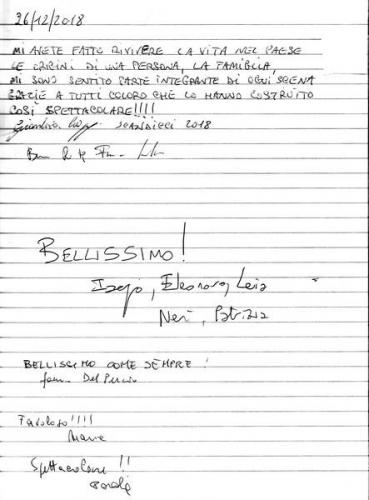 26/12/2018
MI AVETE FATTO RIVIVERE LA VITA NEL PAESE
LE ORIGINI DI UNA PERSONA, LA FAMIGLIA,
MI SONO SENTITO PARTE INTEGRANTE DI OGNI SCENA
GRAZIE A TUTTI COLORO CHE LO HANNO COSTRUITO
COSÌ SPETTACOLARE!!!!
SCANDICCI 2018
BELLISSIMO!
Eleonora,
Neri, Patrizia
BELLISSIMO COME SEMPRE!
fam. Del
Favoloso!!!!
Spettacolare!!